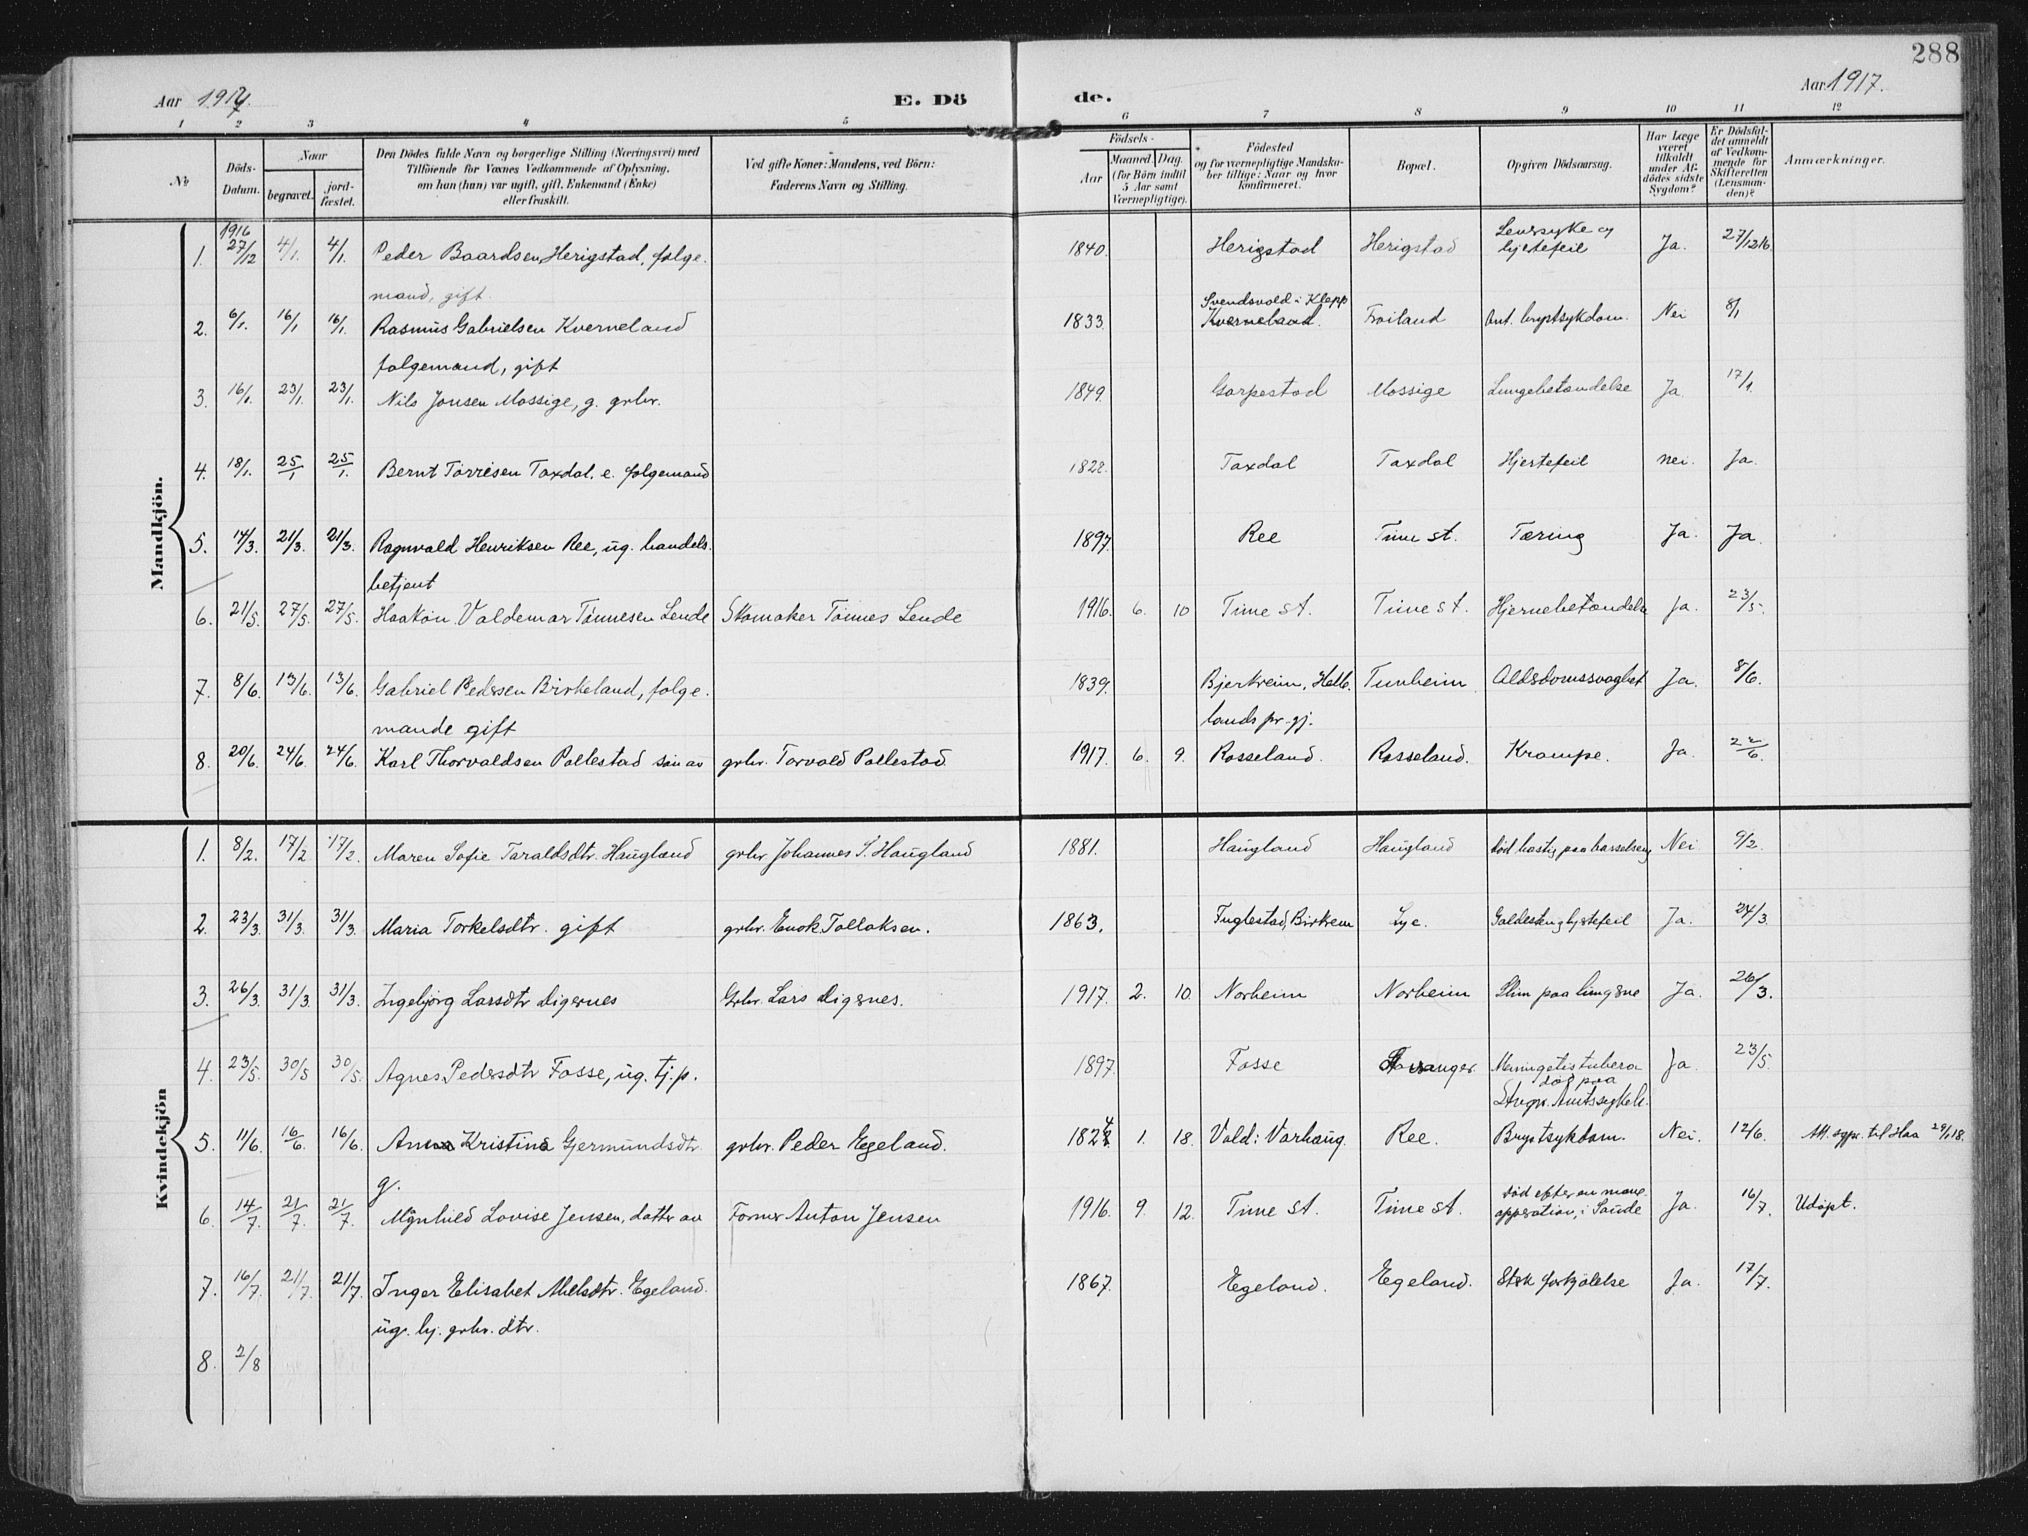 288
Aar 1917.
E. Dö
de.
Aar 1917.
1 2 3 4 5 6 7 8 9 10 11 12
No
Döds-Datum.
Naar
begravet.
jord-fæstet.
Den Dödes fulde Navn og borgerlige Stilling (Næringsvei) med
Tilföiende for Voxnes Vedkommende af Oplysning,
om han (hun) var ugift, gift, Enkemand (Enke)
eller fraskilt.
Ved gifte Koner: Mandens, ved Börn:
Faderens Navn og Stilling.
Födsels-
Aar
Maaned. Dag.
(for Börn indtil
5 Aar samt
Værnepligtige).
Födested
og for værnepligtige Mandska-
ber tillige: Naar og hvor
konfirmeret.
Bopæl.
Opgiven Dödsaarsag.
Har Læge
været
tilkaldt
under Af-
dödes sidste
Sygdom?
Er Dödsfal-
det anmeldt
af Vedkom-
mende for
Skifteretten
(Lensman-
den)?
Anmærkninger.
Mandkjön.
1916
1. 27/12 4/1. 4/1. Peder Baardsen Herigstad, folge- 1840. Herigstad Herigstad Leversyke og hjertefeil Ja. 27/12 16
mand, gift.
2. 6/1. 16/1 16/1. Rasmus Gabrielsen Kverneland 1833. Svendsvold i Klepp Kverneland. Froiland Ant. brystsykdom. Nei 8/1
folgemand, gift
3. 16/1. 23/1. 23/1. Nils Jonsen Mossige, g. grbr. 1849. Garpestad Mossige Lungebetændelse Ja 17/1
4. 18/1. 25/1 25/1. Bernt Torrisen Taxdal, e. folgemand 1822. Taxdal Taxdal Hjertefeil nei. Ja.
5. 14/3. 21/3. 21/3. Ragnvald Henriksen Ree, ug. handels- 1897. Ree Time st. Tæring Ja. Ja.
betjent
6. 21/5. 27/5. 27/5. Haakon Valdemar Tønnesen Lende Skomaker Tönnes Lende 1916. 6. 10 Time st. Time st. Hjernebetændelse Ja. 23/5.
7. 8/6. 13/6. 13/6. Gabriel Pedersen Birkeland, folge- 1839. Bjerkreim, Helle- Tunheim Aldsdomssvaghet Ja. 8/6.
mande gift lands pr.gj.
8. 20/6. 24/6. 24/6. Karl Thorvaldsen Pollestad søn av grbr. Torvald Pollestad 1917. 6. 9. Rosseland. Rosseland. Krampe. Ja. 22/6.
Kvindekjön
1. 8/2. 17/2 17/2. Maren Sofie Taraldsdtr. Haugland grbr. Johannes S. Haugland 1881. Haugland Haugland død hastig paa barselseng Nei 9/2.
2. 23/3. 31/3. 31/3. Maria Torkelsdtr. gift grbr. Enok Tollaksen. 1863. Fuglestad, Birkrem Lye. Galdesten, hjertefeil Ja. 24/3
3. 26/3. 31/3 31/3. Ingebjørg Larsdtr Digernes Grbr. Lars Digernes. 1917. 2. 10. Norheim Norheim Slim paa lungene Ja. 26/3.
4. 23/5. 30/5 30/5. Agnes Pedersdtr Fosse, ug. tj.p. 1897 Fosse Stavanger Meningetis tubera Ja 23/5.
død paa
Stvgr. Amtssykeh.
5. 11/6. 16/6. 16/6. Anna Kristina Gjermundsdtr grbr. Peder Egeland. 1824 1. 18. Vold i Varhaug. Ree. Brystsykdom. Nei. 12/6. Att. til Haa 29/1 18.
g.
6. 14/7. 21/7. 21/7. Magnhild Lovise Jensen, datter av Former Anton Jensen 1916. 9. 12. Time st. Time st. død efter en mave- opperation, i Sande Ja. 16/7. Udøpt.
7. 16/7. 21/7. 21/7. Inger Elisabet Abelsdtr. Egeland. 1867. Egeland. Egeland. Stærk forkjølelse Ja. 17/7.
ug. hj. grbr. dtr.
8. 2/8